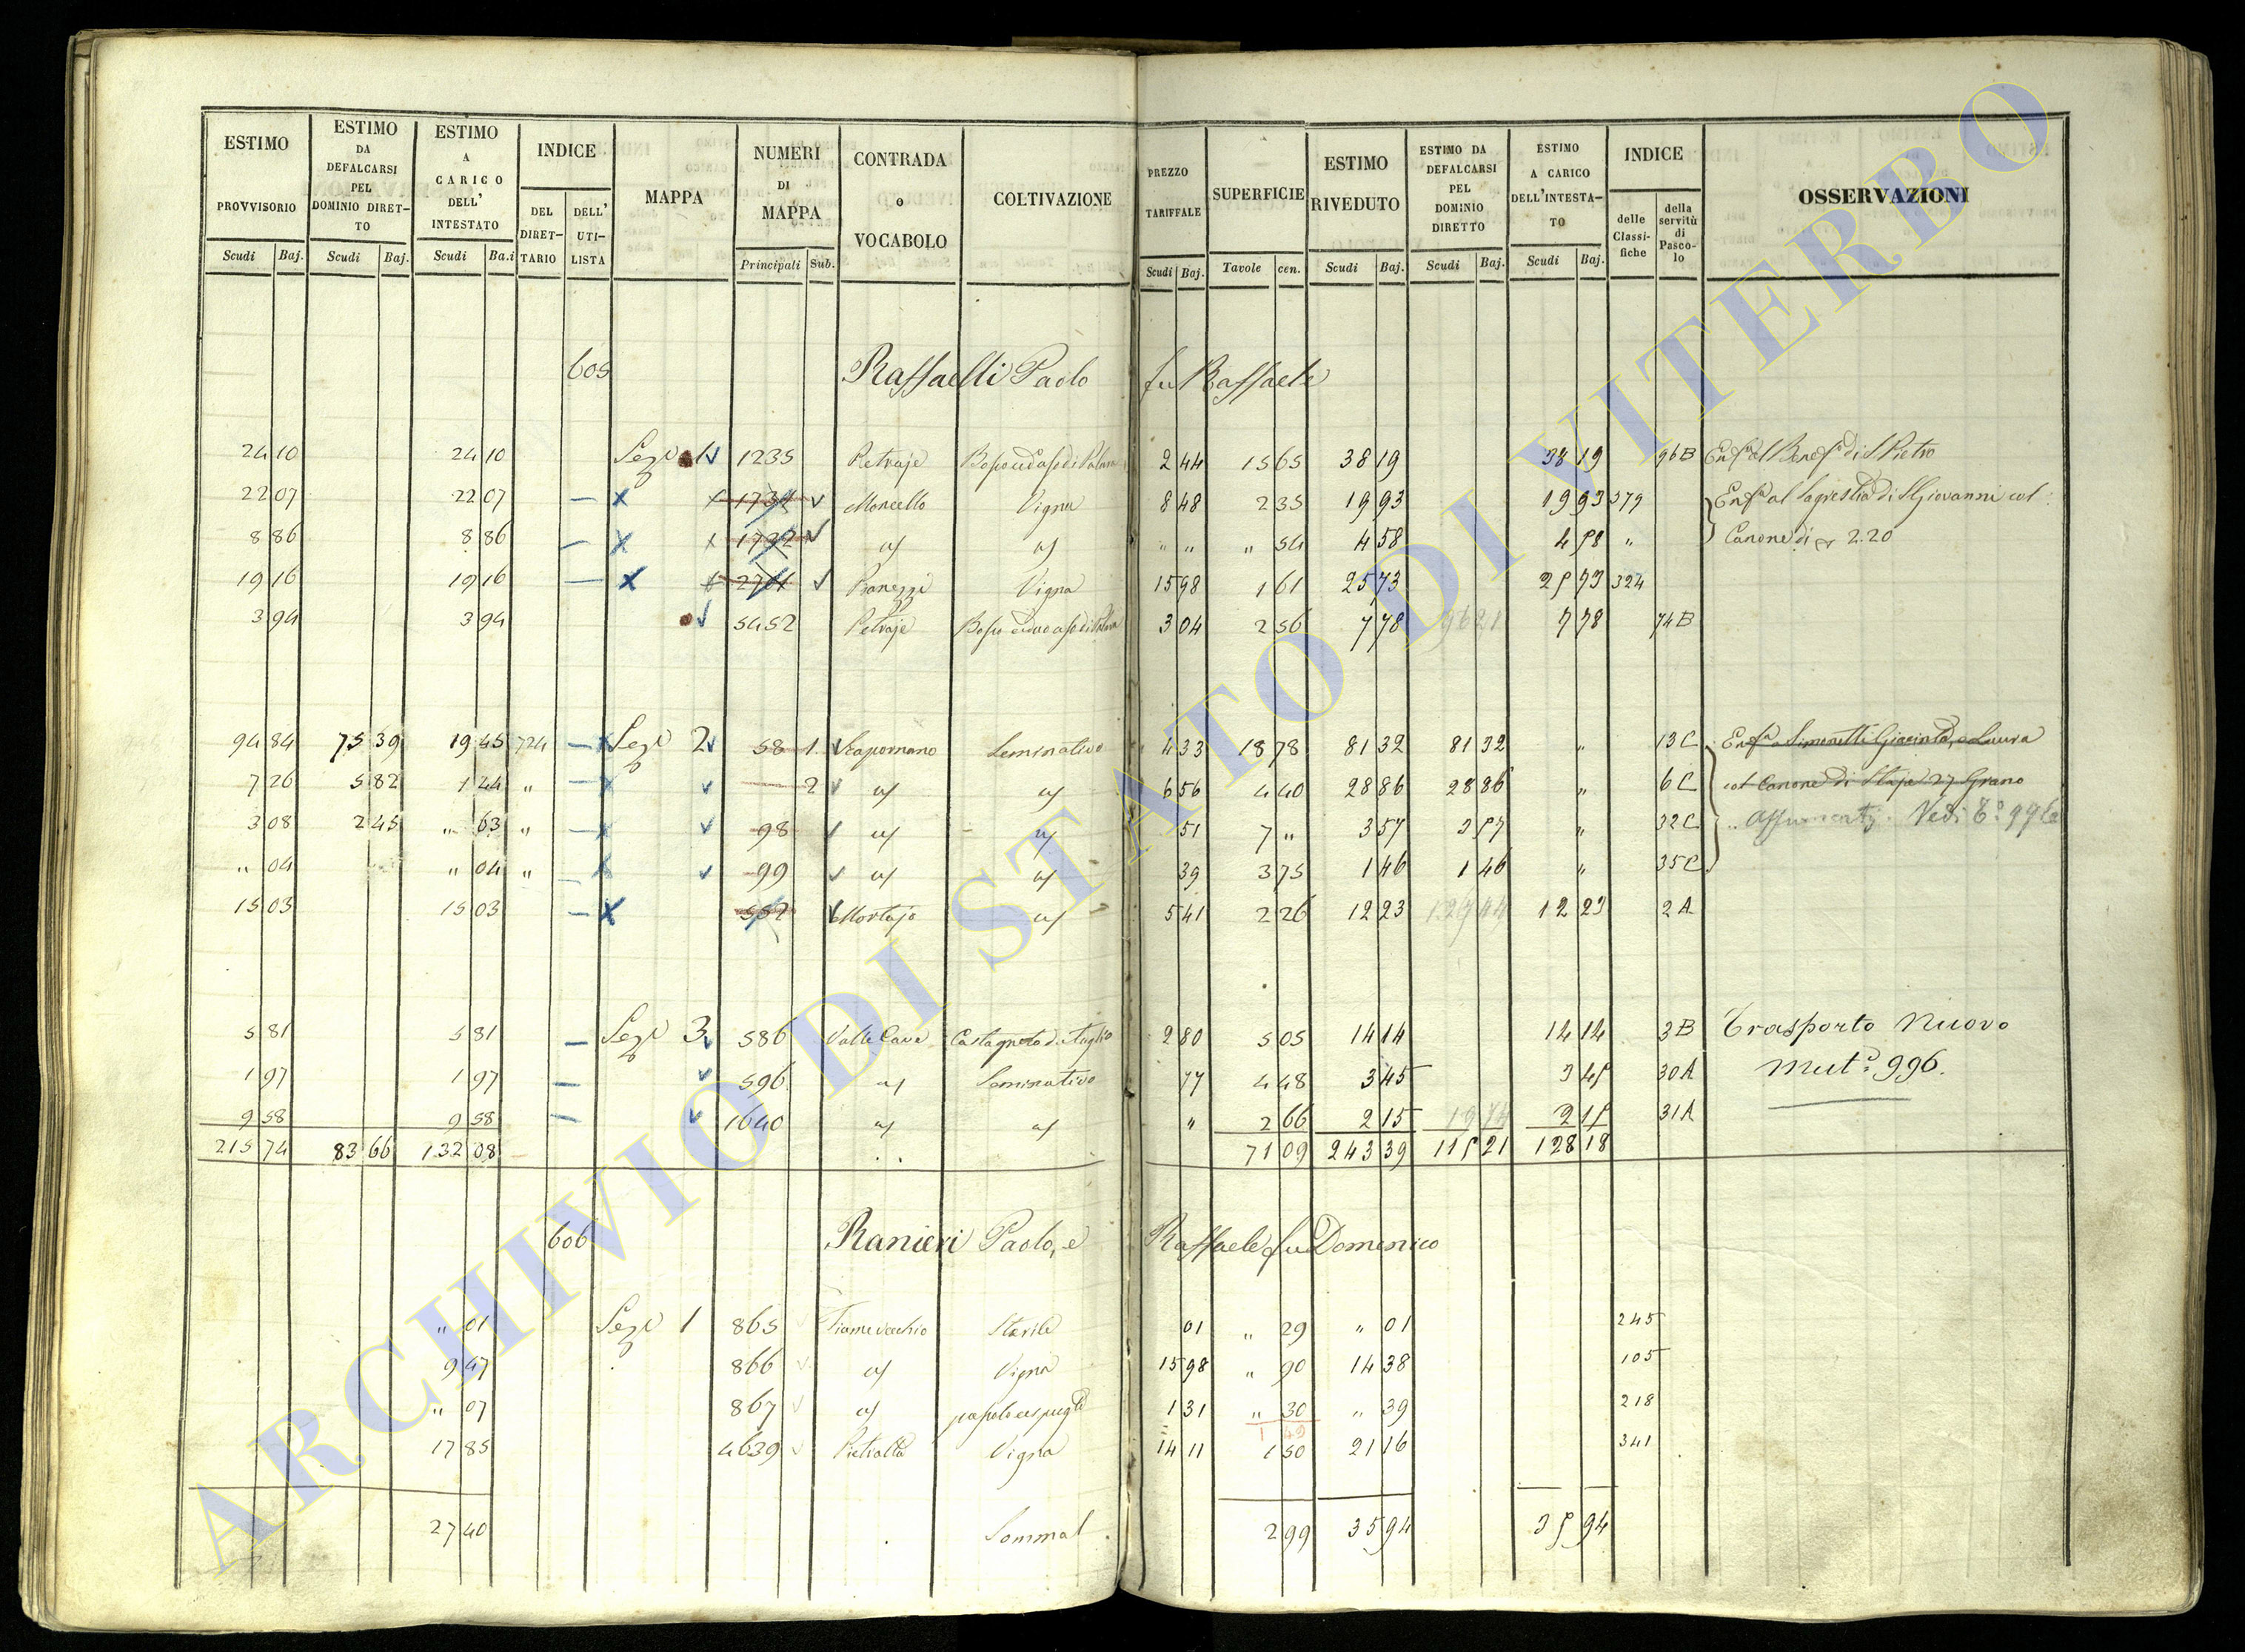 ESTIMO PROVVISORIO
Scudi Baj.
ESTIMO DA DEFALCARSI PEL DOMINIO DIRET-TO
Scudi Baj.
ESTIMO A CARICO DELL' INTESTATO
Scudi Ba.i
INDICE
DEL DIRET-TARIO
DELL' UTI-LISTA
MAPPA
NUMERI DI MAPPA
Principali Sub.
CONTRADA o VOCABOLO
COLTIVAZIONE
PREZZO TARIFFALE
Scudi Baj.
SUPERFICIE
Tavole cen.
ESTIMO RIVEDUTO
Scudi Baj.
ESTIMO DA DEFALCARSI PEL DOMINIO DIRETTO
Scudi Baj.
ESTIMO A CARICO DELL'INTESTA-TO
Scudi Baj.
INDICE
delle Classi-fiche
della servitù di Pasco-lo
OSSERVAZIONI
605 Raffaelli Paolo fu Raffaele
24 10 24 10 Sez 1 1235 Petraje 2 44 15 65 38 19 38 19 96B S Pietro
22 07 22 07 1731 Moncello Vigna 8 48 2 35 19 93 19 93 379 al Sagrestia di S Giovanni col
8 86 8 86 1732 " " " 54 4 58 4 58 " Canone di 2.20
19 16 19 16 2701 Vigna 15 98 1 61 25 73 25 73 324
3 94 3 94 5452 Petraje 3 04 2 56 7 78 96 21 7 78 74B
94 84 75 39 19 45 724 Sez 2 58 1 Scapornano Seminativo 4 33 18 78 81 32 81 32 " 13C Simonetti Giacinta, e Laura
7 26 5 82 1 44 " 2 6 56 4 40 28 86 28 86 " 6C col Canone di Staja 27 Grano
3 08 2 45 " 63 " 98 51 7 " 3 57 3 57 " 32C Vedi
" 04 " 04 " 99 39 3 75 1 46 1 46 " 35C
15 03 15 03 557 Mortajo 5 41 2 26 12 23 12 23 2A
5 81 5 81 Sez 3 586 Valle Cava Castagneto 2 80 5 05 14 14 14 14 3B Trasporto Nuovo
1 97 1 97 596 Seminativo 77 4 48 3 45 3 45 30A Mut.e 996.
9 58 9 58 1640 " 2 66 2 15 2 15 31A
215 74 83 66 132 08 71 09 243 39 115 21 128 18
606 Ranieri Paolo, e Raffaele fu Domenico
" 01 Sez 1 865 Fiume vecchio Sterile 01 " 29 " 01 245
9 47 866 Vigna 15 98 " 90 14 38 105
" 07 867 1 31 " 30 " 39 218
17 85 4639 Pietralta Vigna 14 11 1 50 21 16 341
27 40 Somma 2 99 35 94 35 94
ARCHIVIO DI STATO DI VITERBO